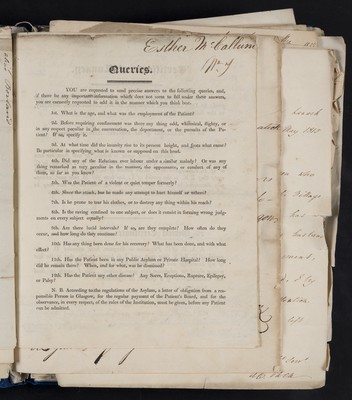 Esther McCallum
Queries.
YOU are requested to send precise answers to the following queries, and,
if there be any important information which does not seem to fall under these answers,
you are earnestly requested to add it in the manner which you think best.
1st. What is the age, and what was the employment of the Patient?
2d. Before requiring confinement was there any thing odd, whimsical, flighty, or
in any respect peculiar in the conversation, the deportment, or the pursuits of the Pa-
tient? If so, specify it.
3d. At what time did the insanity rise to its present height, and from what cause?
Be particular in specifying what is known or supposed on this head.
4th. Did any of the Relations ever labour under a similar malady? Or was any
thing remarked as very peculiar in the manner, the appearance, or conduct of any of
them, as far as you know?
5th. Was the Patient of a violent or quiet temper formerly?
6th. Since the attack, has he made any attempt to hurt himself or others?
7th. Is he prone to tear his clothes, or to destroy any thing within his reach?
8th. Is the raving confined to one subject, or does it consist in forming wrong judg-
ments on every subject equally?
9th. Are there lucid intervals? If so, are they complete? How often do they
occur, and how long do they continue?
10th. Has any thing been done for his recovery? What has been done, and with what
effect?
11th. Has the Patient been in any Public Asylum or Private Hospital? How long
did he remain there? When, and for what, was he dismissed?
12th. Has the Patient any other disease? Any Sores, Eruptions, Rupture, Epilepsy,
or Palsy?
N. B. According to the regulations of the Asylum, a letter of obligation from a res-
ponsible Person in Glasgow, for the regular payment of the Patient's Board, and for the
observance, in every respect, of the rules of the Institution, must be given, before any Patient
can be admitted.